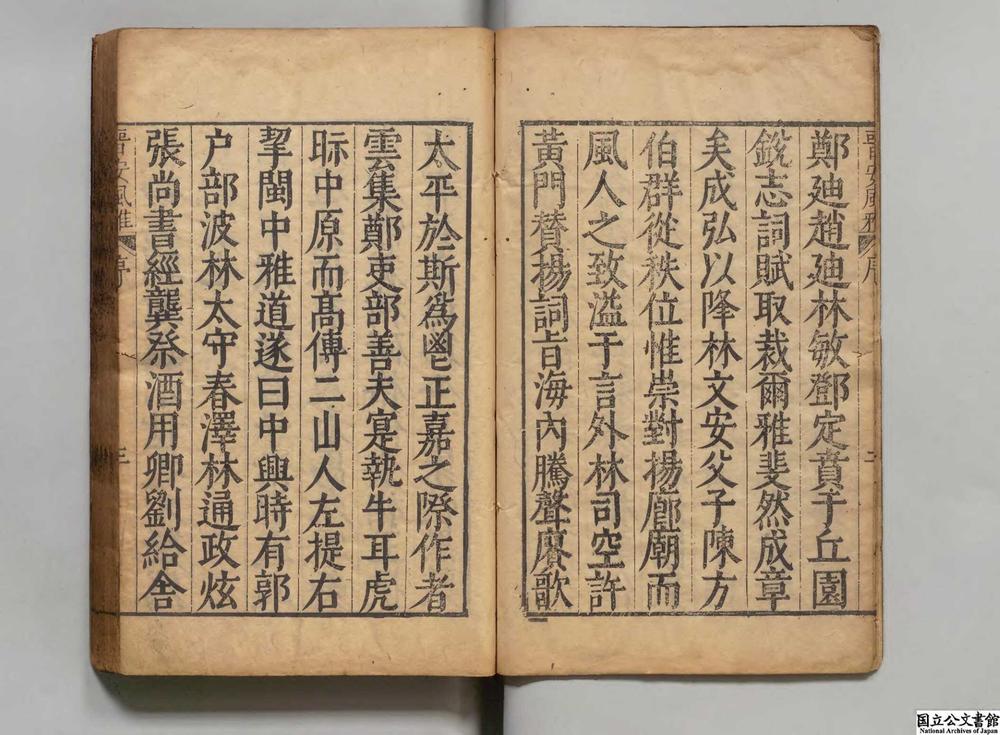 晉安風雅 序 二
鄭廸趙廸林敏鄧定賁于丘園
銳志詞賦取裁爾雅斐然成章
矣成弘以降林文安父子陳方
伯群從秩位惟崇對揚廊廟而
風人之致溢于言外林司空許
黃門賛揚詞旨海內騰聲賡歌
太平於斯爲盛正嘉之際作者
雲集鄭吏部善夫寔執牛耳虎
眎中原而髙傅二山人左提右
挈閩中雅道遂曰中興時有郭
户部波林太守春澤林通政炫
張尚書經龔祭酒用卿劉給舍
晉安風雅 序 三
国立公文書館
National Archives of Japan